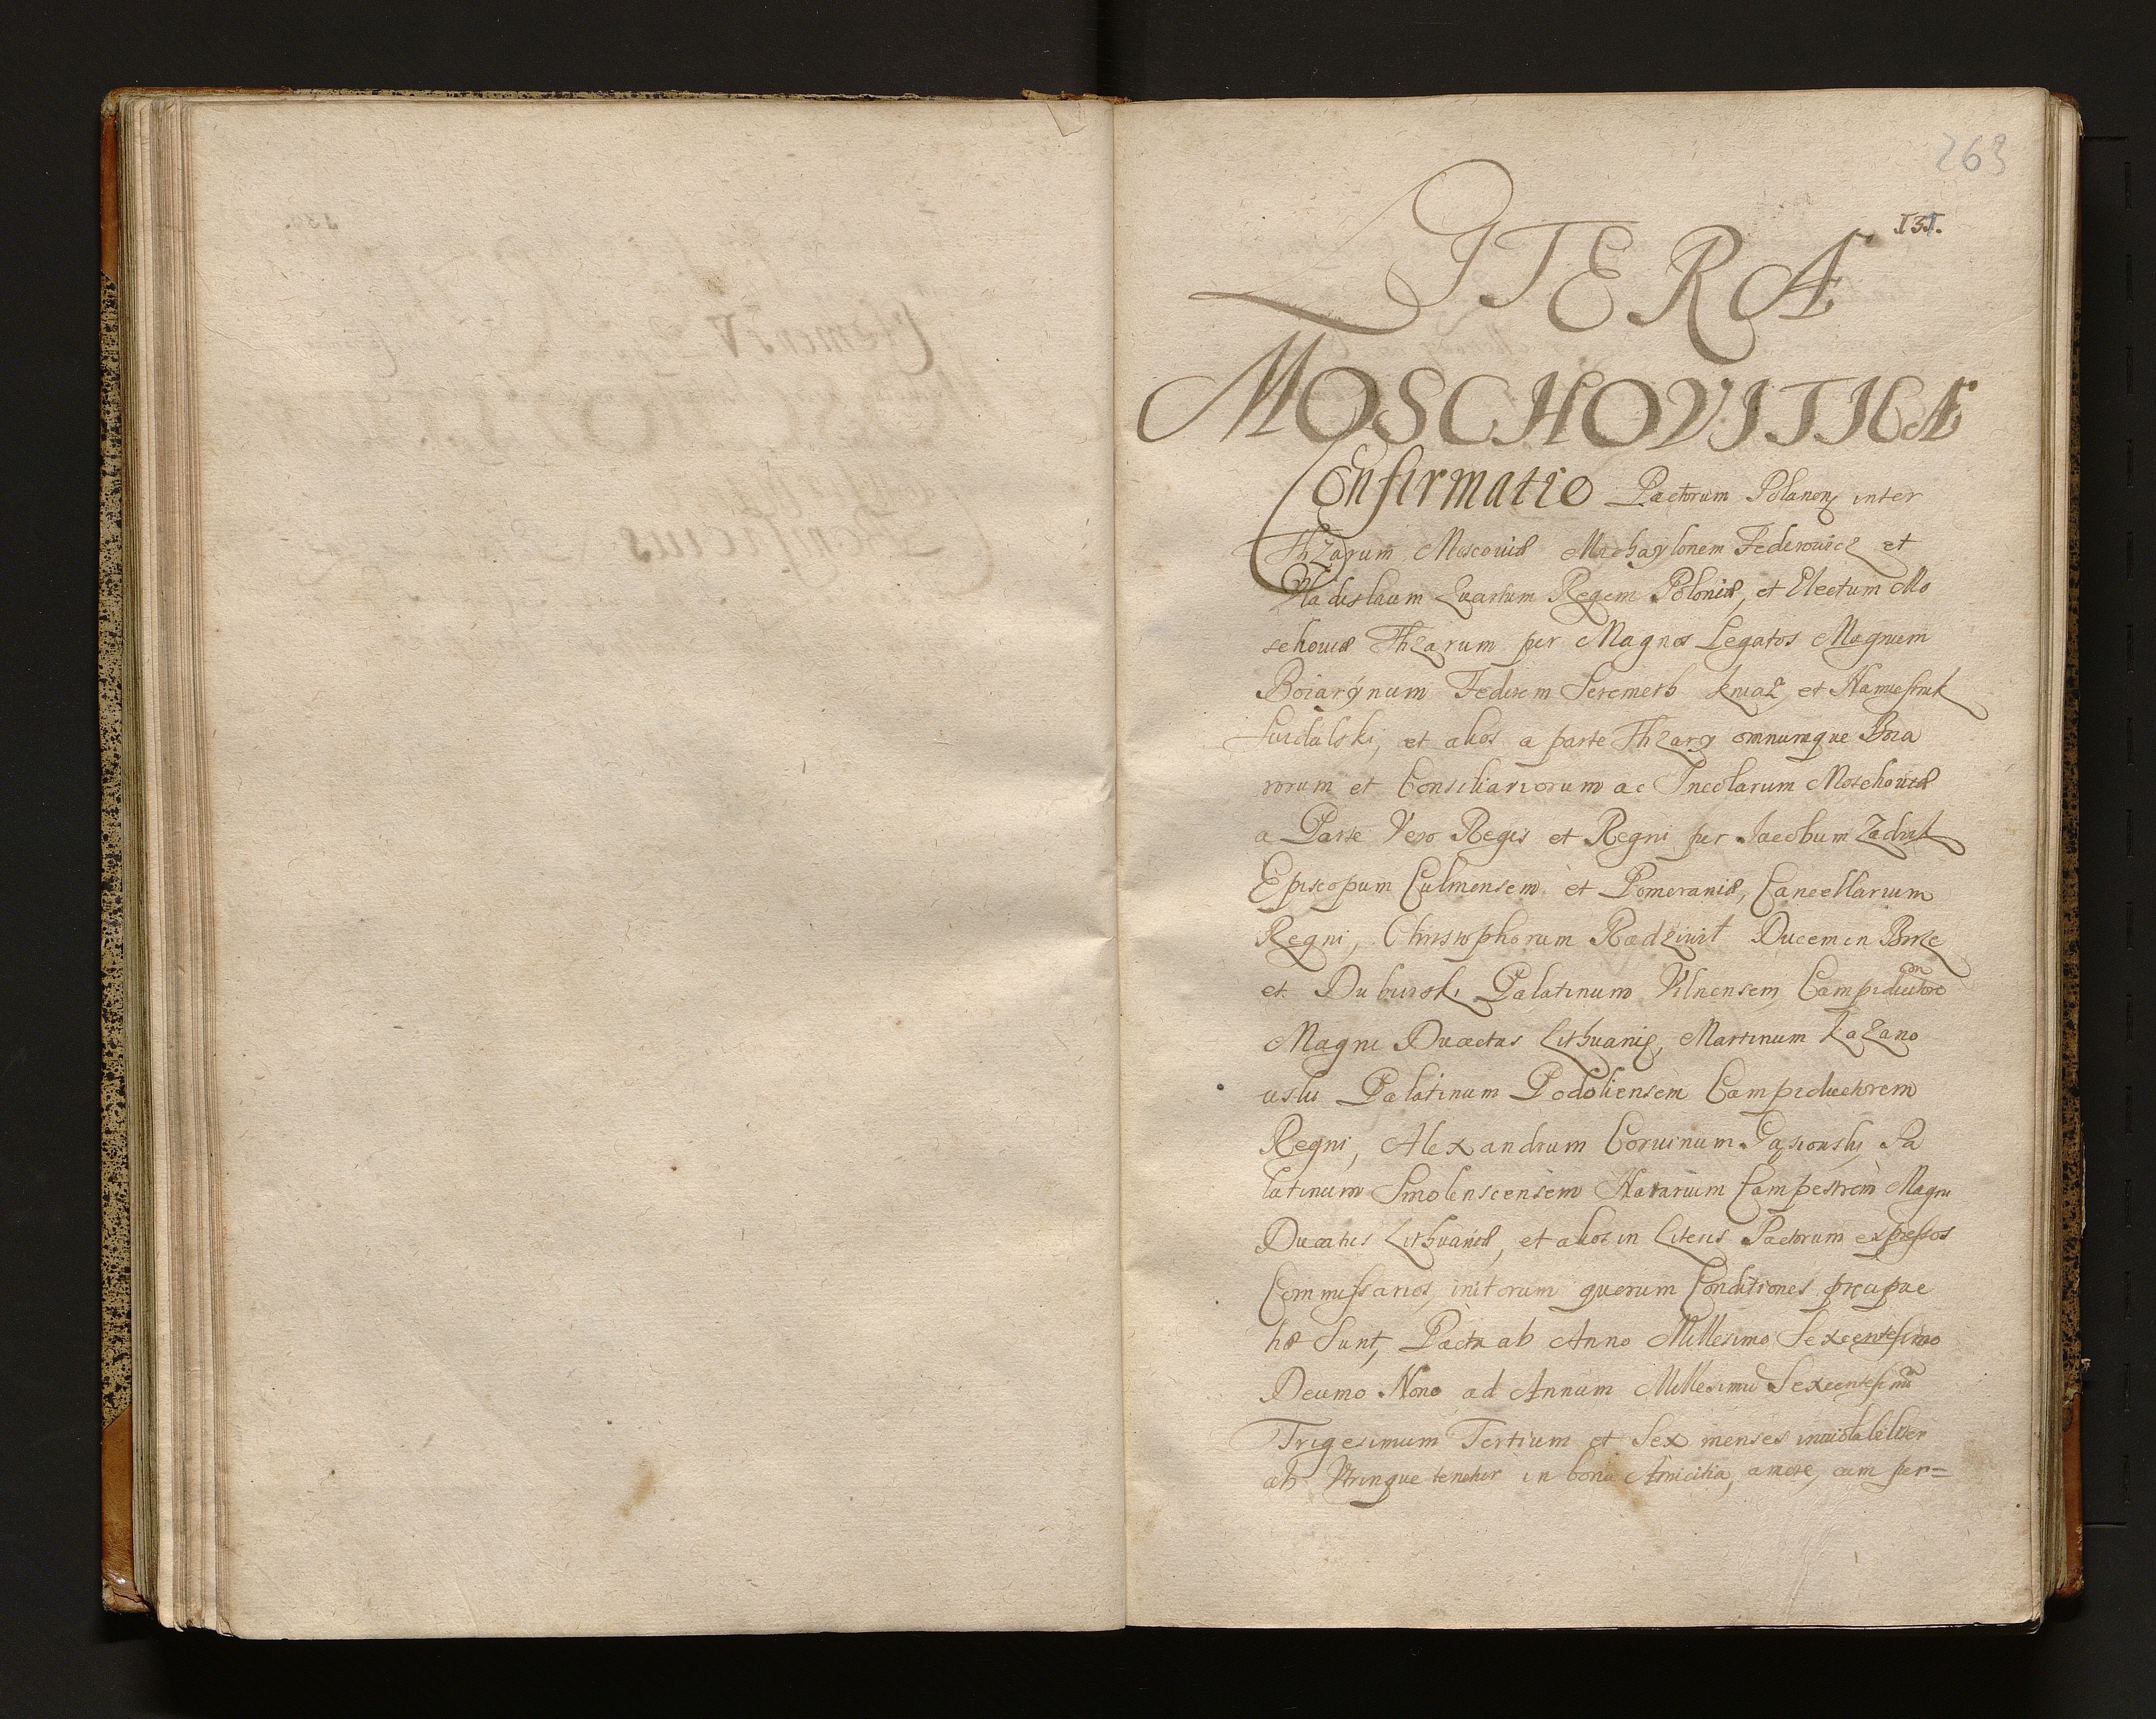 263
131.
LITERÆ
MOSCHOVITICÆ
Confirmatio Pactorum Polanons inter
Thzarum Moscouiæ Michaylonem Federouicz et
Vladislaum Quartum Regem Poloniæ, et Electum Mo
schouiæ Thzarum per Magnos Legatos Magnum
Boiarynum Federem Seremeth kniaz et Namiestnik
Suzdalski, et alios a parte Thzary omniumque Boia
rorum et Consiliariorum ac Incolarum Moschouiæ
a Parte Vero Regis et Regni per Jacobum Zadzik
Episcopum Culmensem et Pomeraniæ, Cancellarium
Regni, Christophorum Radziuil Ducem in Birze
et Dubinski Palatinum Vilnensem, Campiductorem
Magni Ducatus Lithuanię, Martinum Kazano
uski Palatinum Podoliensem Campiductorem
Regni, Alexandrum Coruinum Gąsiouski, Pa
latinum Smolenscensem Notarium Campestrem Magni
Ducatus Lithuaniæ, et alios in Literis Pactorum expressos
Commissarios, initorum quorum Conditiones pręcipue
hæ Sunt, Pacta ab Anno Millesimo Sexcentesimo
Decimo Nono ad Annum Millesimū Sexcentesimū
Trigesimum Tertium et Sex menses inuiolabiliter
ab Vtrinque tenetur in bona Amicitia, amore, cum per=